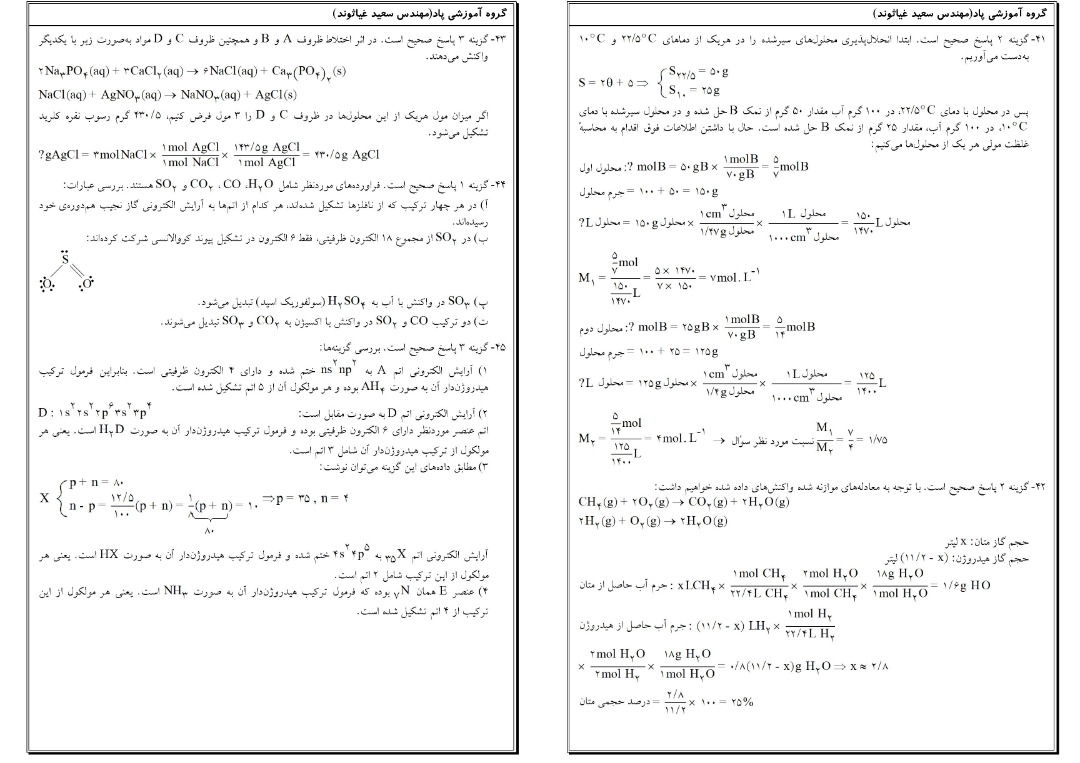 گروه آموزشی پاد(مهندس سعید غیاثوند)
۴۱- گزینه ۲ پاسخ صحیح است. ابتدا انحلال‌پذیری محلول‌های سیرشده را در هریک از دماهای ۲۲/۵°C و ۱۰°C
به‌دست می‌آوریم.
S = ۲θ + ۵ ⇒ { S۲۲/۵ = ۵۰g
S۱۰ = ۲۵g
پس در محلول با دمای ۲۲/۵°C، در ۱۰۰ گرم آب مقدار ۵۰ گرم از نمک B حل شده و در محلول سیرشده با دمای
۱۰°C، در ۱۰۰ گرم آب، مقدار ۲۵ گرم از نمک B حل شده است. حال با داشتن اطلاعات فوق اقدام به محاسبهٔ
غلظت مولی هر یک از محلول‌ها می‌کنیم:
محلول اول :? molB = ۵۰gB × ۱molB/۷۰gB = ۵/۷ molB
جرم محلول = ۱۰۰ + ۵۰ = ۱۵۰g
?L محلول = ۱۵۰g محلول × ۱cm³ محلول/۱/۴۷g محلول × ۱L محلول/۱۰۰۰cm³ محلول = ۱۵۰/۱۴۷۰ L محلول
M۱ = (۵/۷ mol)/(۱۵۰/۱۴۷۰ L) = (۵ × ۱۴۷۰)/(۷ × ۱۵۰) = ۷mol.L⁻¹
محلول دوم :? molB = ۲۵gB × ۱molB/۷۰gB = ۵/۱۴ molB
جرم محلول = ۱۰۰ + ۲۵ = ۱۲۵g
?L محلول = ۱۲۵g محلول × ۱cm³ محلول/۱/۴g محلول × ۱L محلول/۱۰۰۰cm³ محلول = ۱۲۵/۱۴۰۰ L
M۲ = (۵/۱۴ mol)/(۱۲۵/۱۴۰۰ L) = ۴mol.L⁻¹ → نسبت مورد نظر سؤال M۱/M۲ = ۷/۴ = ۱/۷۵
۴۲- گزینه ۲ پاسخ صحیح است. با توجه به معادله‌های موازنه شده واکنش‌های داده شده خواهیم داشت:
CH۴(g) + ۲O۲(g) → CO۲(g) + ۲H۲O(g)
۲H۲(g) + O۲(g) → ۲H۲O(g)
حجم گاز متان: x لیتر
حجم گاز هیدروژن: (۱۱/۲ - x) لیتر
جرم آب حاصل از متان : xLCH۴ × ۱mol CH۴/۲۲/۴L CH۴ × ۲mol H۲O/۱mol CH۴ × ۱۸g H۲O/۱mol H۲O = ۱/۶g HO
جرم آب حاصل از هیدروژن : (۱۱/۲ - x) LH۲ × ۱mol H۲/۲۲/۴L H۲
× ۲mol H۲O/۲mol H۲ × ۱۸g H۲O/۱mol H۲O = ۰/۸(۱۱/۲ - x)g H۲O ⇒ x ≈ ۲/۸
درصد حجمی متان = ۲/۸/۱۱/۲ × ۱۰۰ = ۲۵%
گروه آموزشی پاد(مهندس سعید غیاثوند)
۴۳- گزینه ۳ پاسخ صحیح است. در اثر اختلاط ظروف A و B و همچنین ظروف C و D مواد به‌صورت زیر با یکدیگر
واکنش می‌دهند.
۲Na۳PO۴(aq) + ۳CaCl۲(aq) → ۶NaCl(aq) + Ca۳(PO۴)۲(s)
NaCl(aq) + AgNO۳(aq) → NaNO۳(aq) + AgCl(s)
اگر میزان مول هریک از این محلول‌ها در ظروف C و D را ۳ مول فرض کنیم، ۴۳۰/۵ گرم رسوب نقره کلرید
تشکیل می‌شود.
?gAgCl = ۳molNaCl × ۱mol AgCl/۱mol NaCl × ۱۴۳/۵g AgCl/۱mol AgCl = ۴۳۰/۵g AgCl
۴۴- گزینه ۱ پاسخ صحیح است. فراورده‌های موردنظر شامل H۲O، CO، CO۲ و SO۲ هستند. بررسی عبارات:
آ) در هر چهار ترکیب که از نافلزها تشکیل شده‌اند، هر کدام از اتم‌ها به آرایش الکترونی گاز نجیب هم‌دوره‌ی خود
رسیده‌اند.
ب) در SO۲ از مجموع ۱۸ الکترون ظرفیتی، فقط ۶ الکترون در تشکیل پیوند کووالانسی شرکت کرده‌اند:
S
O O
پ) SO۳ در واکنش با آب به H۲SO۴ (سولفوریک اسید) تبدیل می‌شود.
ت) دو ترکیب CO و SO۲ در واکنش با اکسیژن به CO۲ و SO۳ تبدیل می‌شوند.
۴۵- گزینه ۳ پاسخ صحیح است. بررسی گزینه‌ها:
۱) آرایش الکترونی اتم A به ns²np² ختم شده و دارای ۴ الکترون ظرفیتی است. بنابراین فرمول ترکیب
هیدروژن‌دار آن به صورت AH۴ بوده و هر مولکول آن از ۵ اتم تشکیل شده است.
۲) آرایش الکترونی اتم D به صورت مقابل است: D : ۱s²۲s²۲p⁶۳s²۳p⁴
اتم عنصر موردنظر دارای ۶ الکترون ظرفیتی بوده و فرمول ترکیب هیدروژن‌دار آن به صورت H۲D است. یعنی هر
مولکول از ترکیب هیدروژن‌دار آن شامل ۳ اتم است.
۳) مطابق داده‌های این گزینه می‌توان نوشت:
X { p + n = ۸۰
n - p = ۱۲/۵/۱۰۰ (p + n) = ۱/۸ (p + n) = ۱۰ ⇒ p = ۳۵ , n = ۴
۸۰
آرایش الکترونی اتم ۳۵X به ۴s²۴p⁵ ختم شده و فرمول ترکیب هیدروژن‌دار آن به صورت HX است. یعنی هر
مولکول از این ترکیب شامل ۲ اتم است.
۴) عنصر E همان ۷N بوده که فرمول ترکیب هیدروژن‌دار آن به صورت NH۳ است. یعنی هر مولکول از این
ترکیب از ۴ اتم تشکیل شده است.